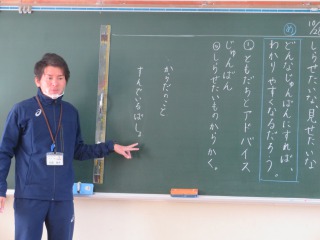 10/28
しらせたいな、見せたいな
め
どんなじゅんばんにすれば、
わかりやすくなるだろう。
① ともだちとアドバイス
じゅんばん
④ しらせたいものからかく。
からだのこと
すんでいるばしょ